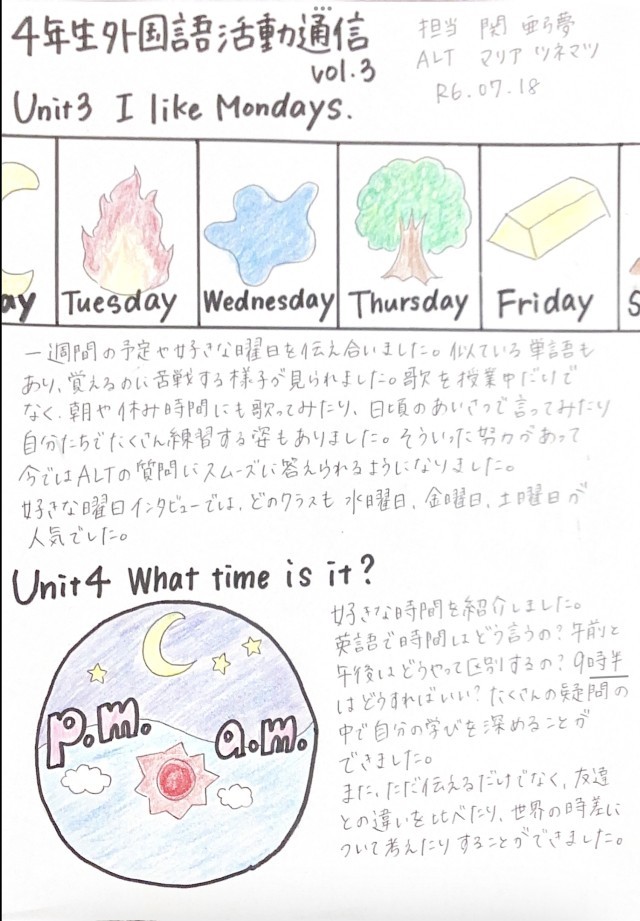 4年生外国語活動通信
vol.3
担当 関 亜弓夢
ALT マリア ツネマツ
R6.07.18
Unit3 I like Mondays.
ay Tuesday Wednesday Thursday Friday S
一週間の予定や好きな曜日を伝え合いました。似ている単語も
あり、覚えるのに苦戦する様子が見られました。歌を授業中だけで
なく、朝や休み時間にも歌ってみたり、日頃のあいさつで言ってみたり
自分たちでたくさん練習する姿もありました。そういった努力があって
今ではALTの質問にスムーズに答えられるようになりました。
好きな曜日インタビューでは、どのクラスも 水曜日、金曜日、土曜日が
人気でした。
Unit4 What time is it?
p.m. a.m.
好きな時間を紹介しました。
英語で時間はどう言うの？午前と
午後はどうやって区別するの？9時半
はどうすればいい？たくさんの疑問の
中で自分の学びを深めることが
できました。
また、ただ伝えるだけでなく、友達
との違いを比べたり、世界の時差に
ついて考えたりすることができました。